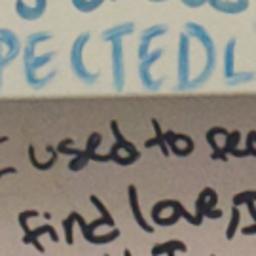 PECTEDL
I used to
find love, I